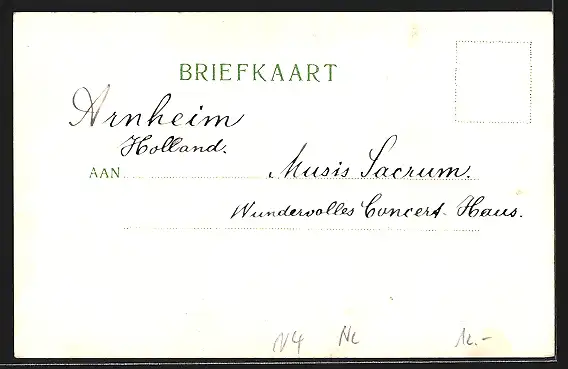 BRIEFKAART
Arnheim
Holland.
AAN Musis Sacrum.
Wundervolles Concert-Haus.
N4 Nc 12.-